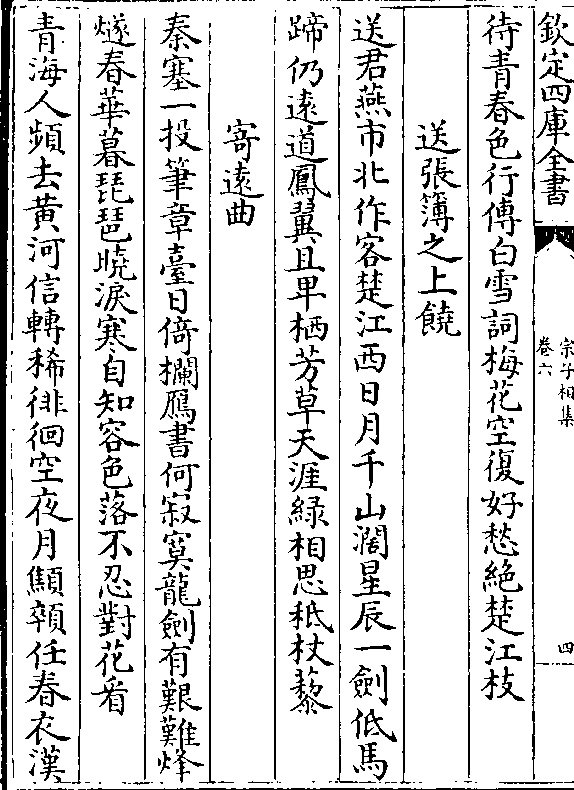 欽定四庫全書
宗子相集
卷六
四
待青春色行傳白雪詞梅花空復好愁絶楚江枝
送張簿之上饒
送君燕市北作客楚江西日月千山濶星辰一劍低馬
蹄仍遠道鳳翼且卑栖芳草天涯緑相思秪杖藜
寄遠曲
秦塞一投筆章臺日倚欄鴈書何寂寞龍劍有艱難烽
燧春華暮琵琶曉淚寒自知容色落不忍對花看
青海人頻去黄河信轉稀徘徊空夜月顦顇任春衣漢